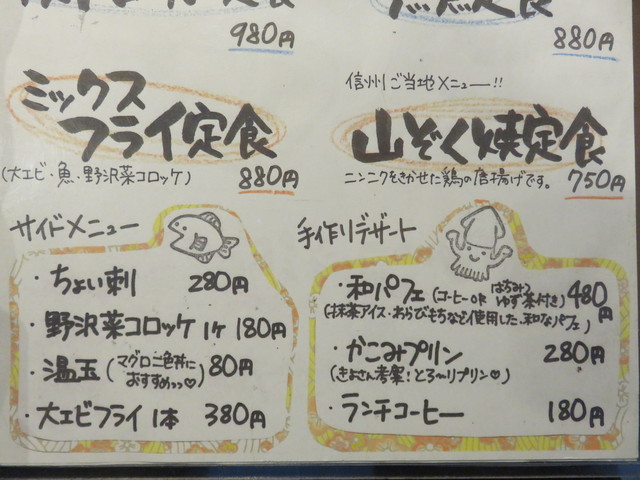 980円
880円
ミックス
フライ定食
(大エビ・魚・野沢菜コロッケ)
880円
信州ご当地メニュー!!
山ぞく焼定食
ニンニクをきかせた鶏の唐揚げです。
750円
サイドメニュー
・ちょい刺 280円
・野沢菜コロッケ1ヶ 180円
・温玉 (マグロ二色丼に
おすすめっっ♡) 80円
・大エビフライ 1本 380円
手作りデザート
・和パフェ (コーヒー or はちみつ
ゆず茶付き) 480円
(抹茶アイス・わらびもちなど使用した、和なパフェ)
・かこみプリン 280円
(きよさん考案!とろ〜りプリン♡)
・ランチコーヒー 180円